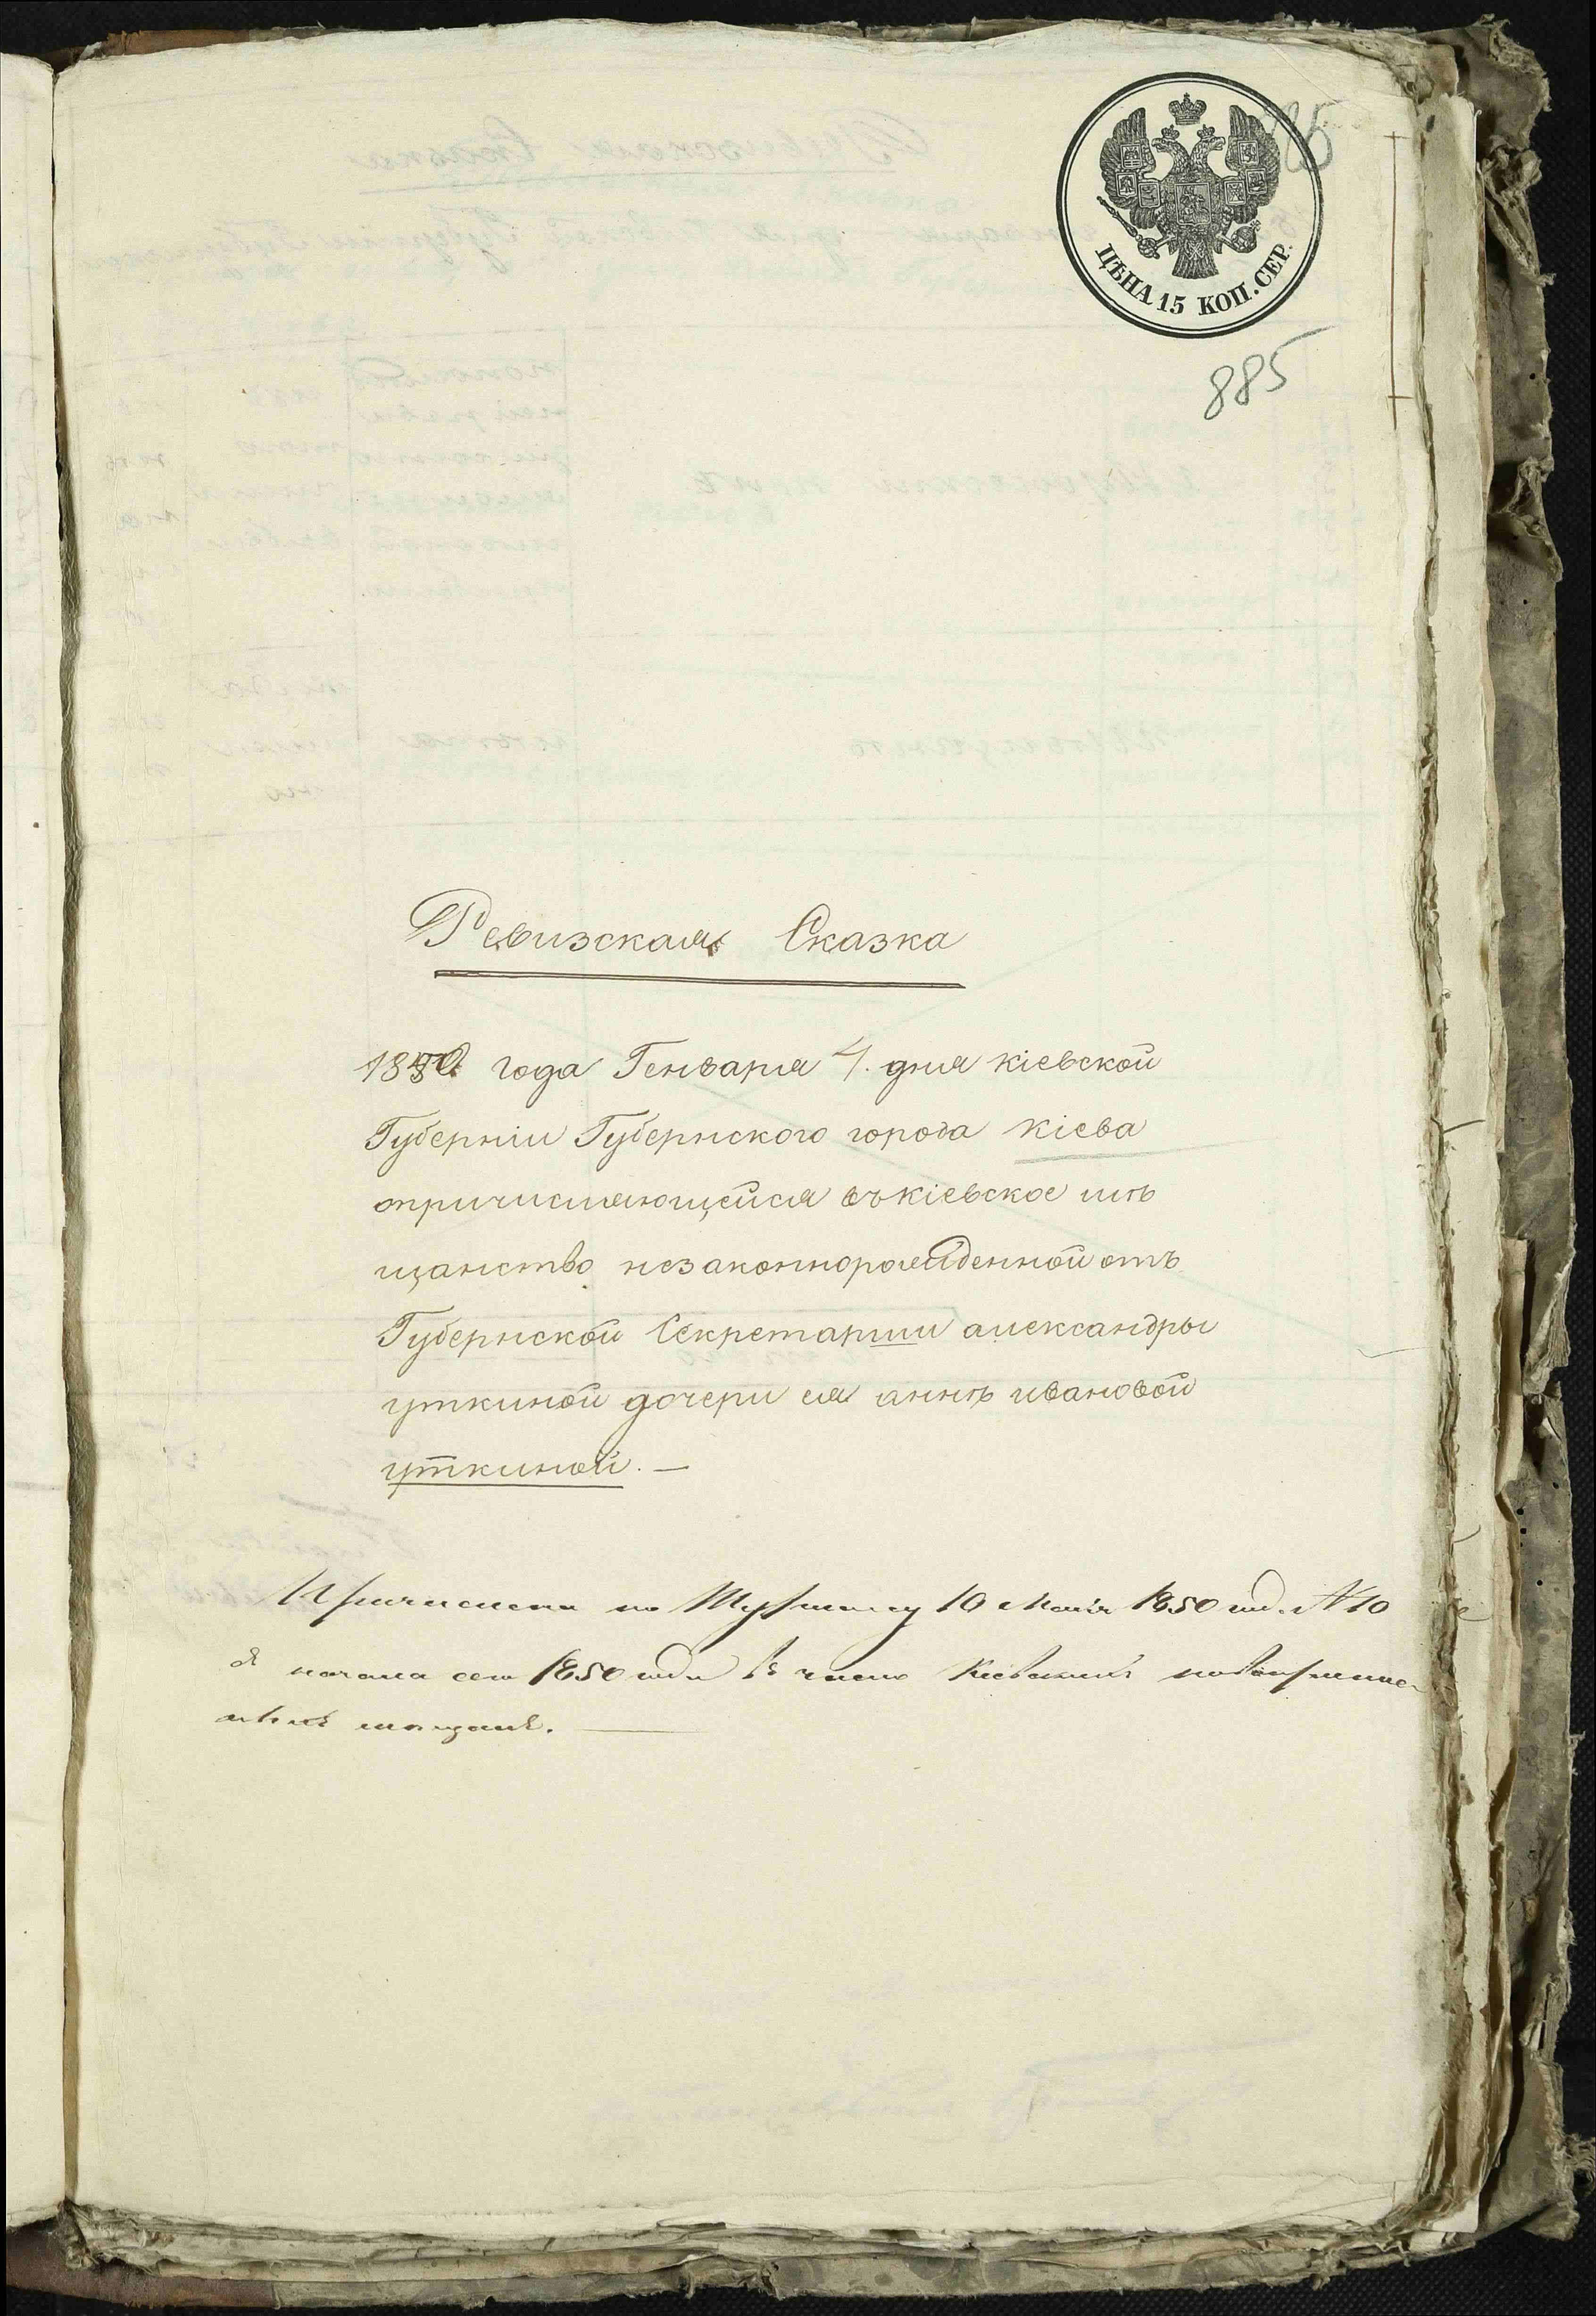 ЦѢНА 15 КОП. СЕР.
885
Ревизская Сказка
1850 года Генваря 4. дня кіевской
Губерніи Губернского города кіева
опричисляющейся въ кіевское мѣ
щанство незаконнорожденной отъ
Губернской Секретарши александры
уткиной дочери ея аннѣ ивановой
уткиной. —
Причислена по 10 Мая 1850 год. № 10
съ начала сего 1850 года въ число Кіевскихъ
мѣщанъ. —